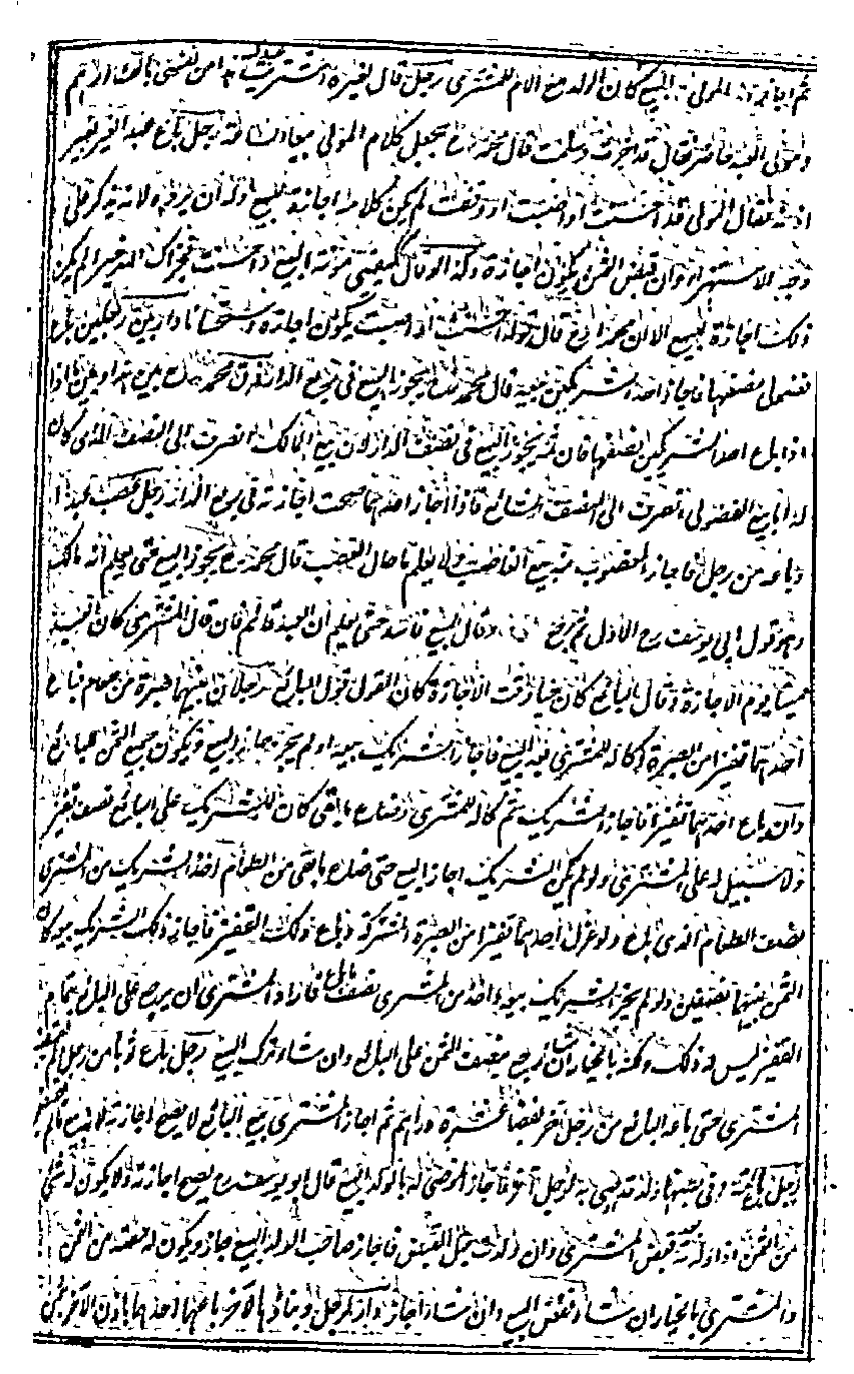 ثم اجازت المولى البيع كان الولد مع الام للمشترى رجل قال لغيره اشتريت عبدك من نفسى بالف درهم
ومولى العبد حاضر فقال قد اجزت وسلمت قال محمد رح يجعل كلام المولى رجل باع عبد الغير بغير
اذنه فقال المولى قد احسنت او اصبت او وفقت لم يكن كلامه اجازة للبيع وله ان يرده لانه يذكر على
وجه الاستهزاء وان قبض الثمن يكون اجازة وكذا لو قال كفيتنى مؤنة البيع او احسنت فجزاك الله خيرا لم يكن
ذلك اجازة للبيع الا ان محمدا رح قال قوله احسنت او اصبت يكون اجازة استحسانا دار بين رجلين باع
فضولى نصفها فاجاز احد الشريكين بيعه قال محمد رح يجوز البيع فى ربع الدار
اذا باع احد الشريكين نصفها فان ثمه يجوز البيع فى نصف الدار لان بيع المالك انصرف الى النصف الذى كان
له اما بيع الفضولى انصرف الى النصف الشائع فاذا اجاز احدهما صحت اجازته فى ربع الدار رجل غصب عبدا
وباعه من رجل فاجاز المغصوب منه بيع الغاصب ولا يعلم ما حال الغصب قال محمد رح يجوز البيع حتى يعلم انه هالك
وهو قول ابى يوسف رح الاول ثم رجع وقال البيع فاسد حتى يعلم ان العبد قائم فان قال المشترى كان العبد
ميتا يوم الاجازة وقال البائع كان حيا وقت الاجازة كان القول قول البائع رجلان بينهما صبرة من طعام فباع
احدهما قفيزا من الصبرة وكاله للمشترى بعد البيع فاجاز الشريك بيعه او لم يجز جاز البيع ويكون جميع الثمن للبائع
وان باع احدهما قفيزا فاجاز الشريك ثم كاله للمشترى وضاع ما بقى كان للشريك على البائع نصف قفيز
ولا سبيل له على المشترى ولو لم يكن الشريك اجاز البيع حتى ضاع ما بقى من الطعام اخذ الشريك من المشترى
نصف الطعام الذى باع ولو عزل احدهما قفيزا من الصبرة المشتركة وباع ذلك القفيز فاجاز ذلك الشريك بيعه كان
الثمن بينهما نصفين ولو لم يجز الشريك بيعه واخذ من المشترى نصف ما باع فاراد المشترى ان يرجع على البائع بتمام
القفيز ليس له ذلك ولكنه بالخيار ان شاء رجع بنصف الثمن على البائع وان شاء ترك البيع رجل باع ثوبا من رجل
المشترى حتى باعه البائع من رجل آخر بفضل عشرة دراهم ثم اجاز المشترى بيع البائع لا يصح اجازته
رجل باع امة وفى بطنها ولد قد اوصى به لرجل آخر فاجاز الموصى له بالولد البيع قال ابو يوسف رح يصح اجازته ولا يكون له شئ
من الثمن اذا ولدته بعد قبض المشترى وان ولدت قبل القبض فاجاز صاحب الولد البيع جاز ويكون له حصته من الثمن
والمشترى بالخيار ان شاء نقض البيع وان شاء اجاز دار لرجل وبناؤها لآخر باعها احدهما باذن الآخر